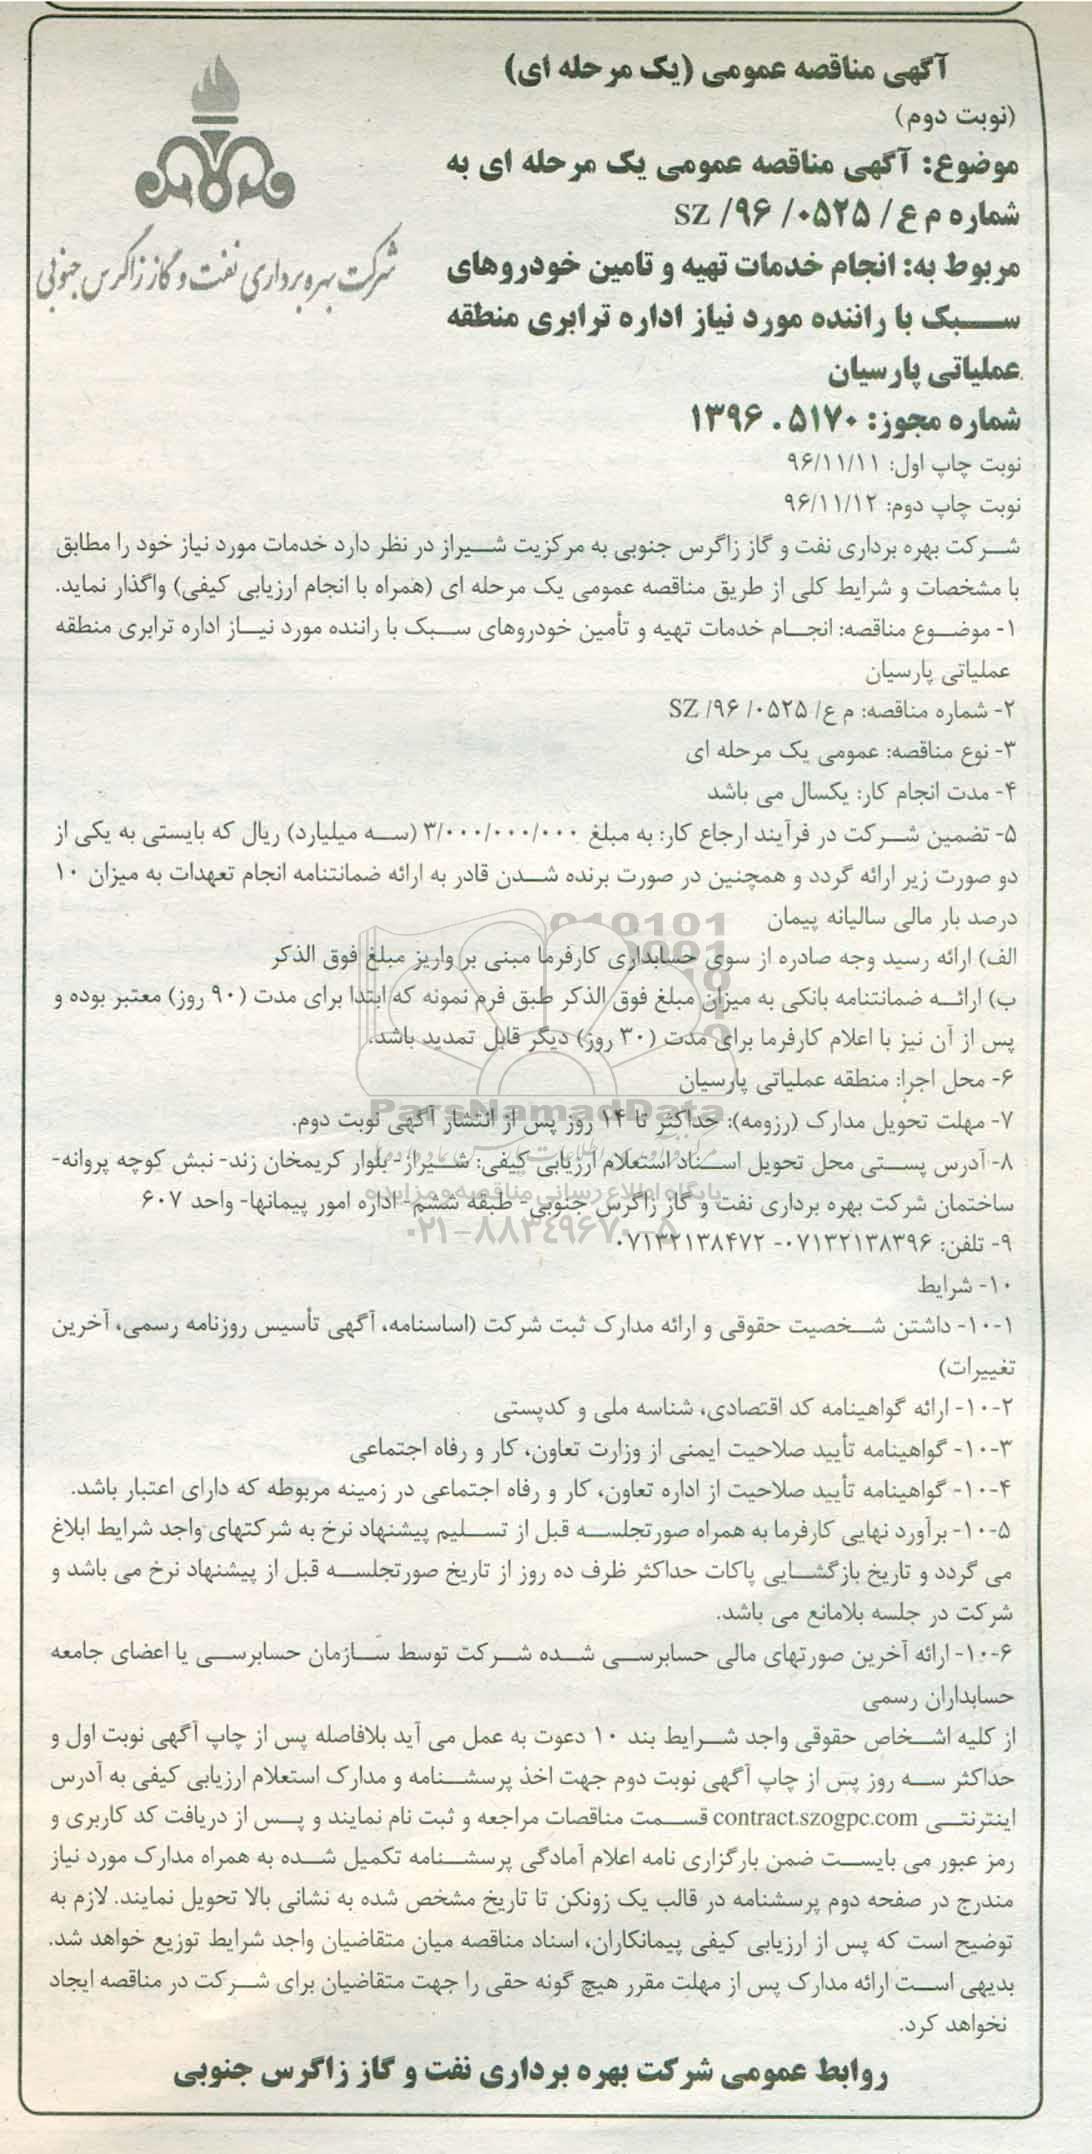 آگهی مناقصه عمومی (یک مرحله ای)
(نوبت دوم)
موضوع: آگهی مناقصه عمومی یک مرحله ای به
شماره م ع/ ۰۵۲۵/ ۹۶/ SZ
شرکت بهره برداری نفت و گاز زاگرس جنوبی
مربوط به: انجام خدمات تهیه و تامین خودروهای
سبک با راننده مورد نیاز اداره ترابری منطقه
عملیاتی پارسیان
شماره مجوز: ۵۱۷۰ . ۱۳۹۶
نوبت چاپ اول: ۹۶/۱۱/۱۱
نوبت چاپ دوم: ۹۶/۱۱/۱۲
شرکت بهره برداری نفت و گاز زاگرس جنوبی به مرکزیت شیراز در نظر دارد خدمات مورد نیاز خود را مطابق
با مشخصات و شرایط کلی از طریق مناقصه عمومی یک مرحله ای (همراه با انجام ارزیابی کیفی) واگذار نماید.
۱- موضوع مناقصه: انجام خدمات تهیه و تأمین خودروهای سبک با راننده مورد نیاز اداره ترابری منطقه
عملیاتی پارسیان
۲- شماره مناقصه: م ع/ ۰۵۲۵/ ۹۶/ SZ
۳- نوع مناقصه: عمومی یک مرحله ای
۴- مدت انجام کار: یکسال می باشد
۵- تضمین شرکت در فرآیند ارجاع کار: به مبلغ ۳/۰۰۰/۰۰۰/۰۰۰ (سه میلیارد) ریال که بایستی به یکی از
دو صورت زیر ارائه گردد و همچنین در صورت برنده شدن قادر به ارائه ضمانتنامه انجام تعهدات به میزان ۱۰
درصد بار مالی سالیانه پیمان
الف) ارائه رسید وجه صادره از سوی حسابداری کارفرما مبنی بر واریز مبلغ فوق الذکر
ب) ارائه ضمانتنامه بانکی به میزان مبلغ فوق الذکر طبق فرم نمونه که ابتدا برای مدت (۹۰ روز) معتبر بوده و
پس از آن نیز با اعلام کارفرما برای مدت (۳۰ روز) دیگر قابل تمدید باشد.
۶- محل اجرا: منطقه عملیاتی پارسیان
ParsNamadData
۷- مهلت تحویل مدارک (رزومه): حداکثر تا ۱۴ روز پس از انتشار آگهی نوبت دوم.
۸- آدرس پستی محل تحویل اسناد استعلام ارزیابی کیفی: شیراز- بلوار کریمخان زند- نبش کوچه پروانه-
پایگاه اطلاع رسانی مناقصه و مزایده
ساختمان شرکت بهره برداری نفت و گاز زاگرس جنوبی- طبقه ششم- اداره امور پیمانها- واحد ۶۰۷
۰۲۱-۸۸۳۴۹۶۷۰-۵
۹- تلفن: ۰۷۱۳۲۱۳۸۳۹۶- ۰۷۱۳۲۱۳۸۴۷۲
۱۰- شرایط
۱۰-۱- داشتن شخصیت حقوقی و ارائه مدارک ثبت شرکت (اساسنامه، آگهی تأسیس روزنامه رسمی، آخرین
تغییرات)
۱۰-۲- ارائه گواهینامه کد اقتصادی، شناسه ملی و کدپستی
۱۰-۳- گواهینامه تأیید صلاحیت ایمنی از وزارت تعاون، کار و رفاه اجتماعی
۱۰-۴- گواهینامه تأیید صلاحیت از اداره تعاون، کار و رفاه اجتماعی در زمینه مربوطه که دارای اعتبار باشد.
۱۰-۵- برآورد نهایی کارفرما به همراه صورتجلسه قبل از تسلیم پیشنهاد نرخ به شرکتهای واجد شرایط ابلاغ
می گردد و تاریخ بازگشایی پاکات حداکثر ظرف ده روز از تاریخ صورتجلسه قبل از پیشنهاد نرخ می باشد و
شرکت در جلسه بلامانع می باشد.
۱۰-۶- ارائه آخرین صورتهای مالی حسابرسی شده شرکت توسط سازمان حسابرسی یا اعضای جامعه
حسابداران رسمی
از کلیه اشخاص حقوقی واجد شرایط بند ۱۰ دعوت به عمل می آید بلافاصله پس از چاپ آگهی نوبت اول و
حداکثر سه روز پس از چاپ آگهی نوبت دوم جهت اخذ پرسشنامه و مدارک استعلام ارزیابی کیفی به آدرس
اینترنتی contract.szogpc.com قسمت مناقصات مراجعه و ثبت نام نمایند و پس از دریافت کد کاربری و
رمز عبور می بایست ضمن بارگزاری نامه اعلام آمادگی پرسشنامه تکمیل شده به همراه مدارک مورد نیاز
مندرج در صفحه دوم پرسشنامه در قالب یک زونکن تا تاریخ مشخص شده به نشانی بالا تحویل نمایند. لازم به
توضیح است که پس از ارزیابی کیفی پیمانکاران، اسناد مناقصه میان متقاضیان واجد شرایط توزیع خواهد شد.
بدیهی است ارائه مدارک پس از مهلت مقرر هیچ گونه حقی را جهت متقاضیان برای شرکت در مناقصه ایجاد
نخواهد کرد.
روابط عمومی شرکت بهره برداری نفت و گاز زاگرس جنوبی